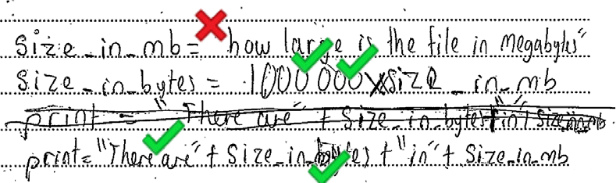 Size_in_mb= "how large is the file in Megabytes"
Size_in_bytes = 1000 000 x Size_in_mb
print = "There are" + Size_in_bytes + "in" + Size_in_mb
print="There are" + Size_in_bytes + "in" + Size_in_mb